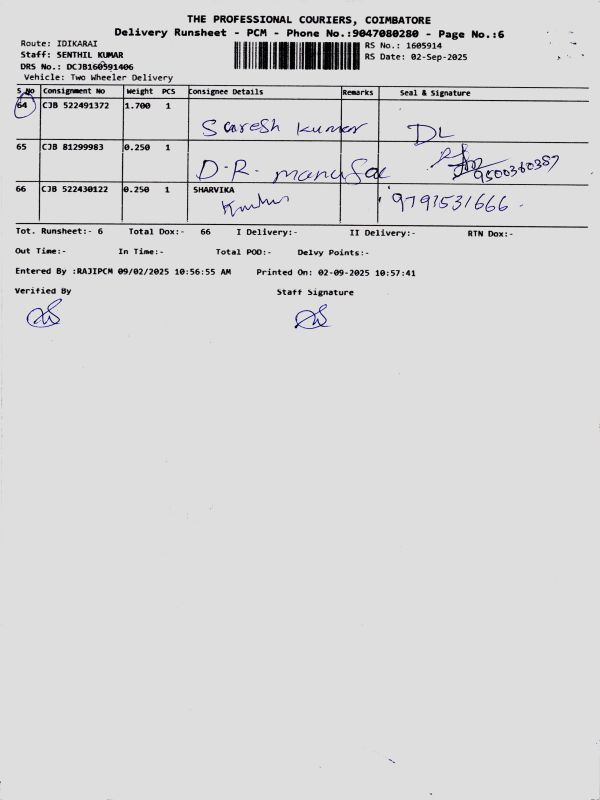 THE PROFESSIONAL COURIERS, COIMBATORE
Delivery Runsheet - PCM - Phone No.:9047080280 - Page No.:6
Route: IDIKARAI
RS No.: 1605914
Staff: SENTHIL KUMAR
RS Date: 02-Sep-2025
DRS No.: DCJB160591406
Vehicle: Two Wheeler Delivery
S.No Consignment No Weight PCS Consignee Details Remarks Seal & Signature
64 CJB 522491372 1.700 1
Suresh kumar DL
65 CJB 81299983 0.250 1
D.R. manufac 9500360387
66 CJB 522430122 0.250 1 SHARVIKA
9791531666.
Tot. Runsheet:- 6 Total Dox:- 66 I Delivery:- II Delivery:- RTN Dox:-
Out Time:- In Time:- Total POD:- Delvy Points:-
Entered By :RAJIPCM 09/02/2025 10:56:55 AM Printed On: 02-09-2025 10:57:41
Verified By Staff Signature